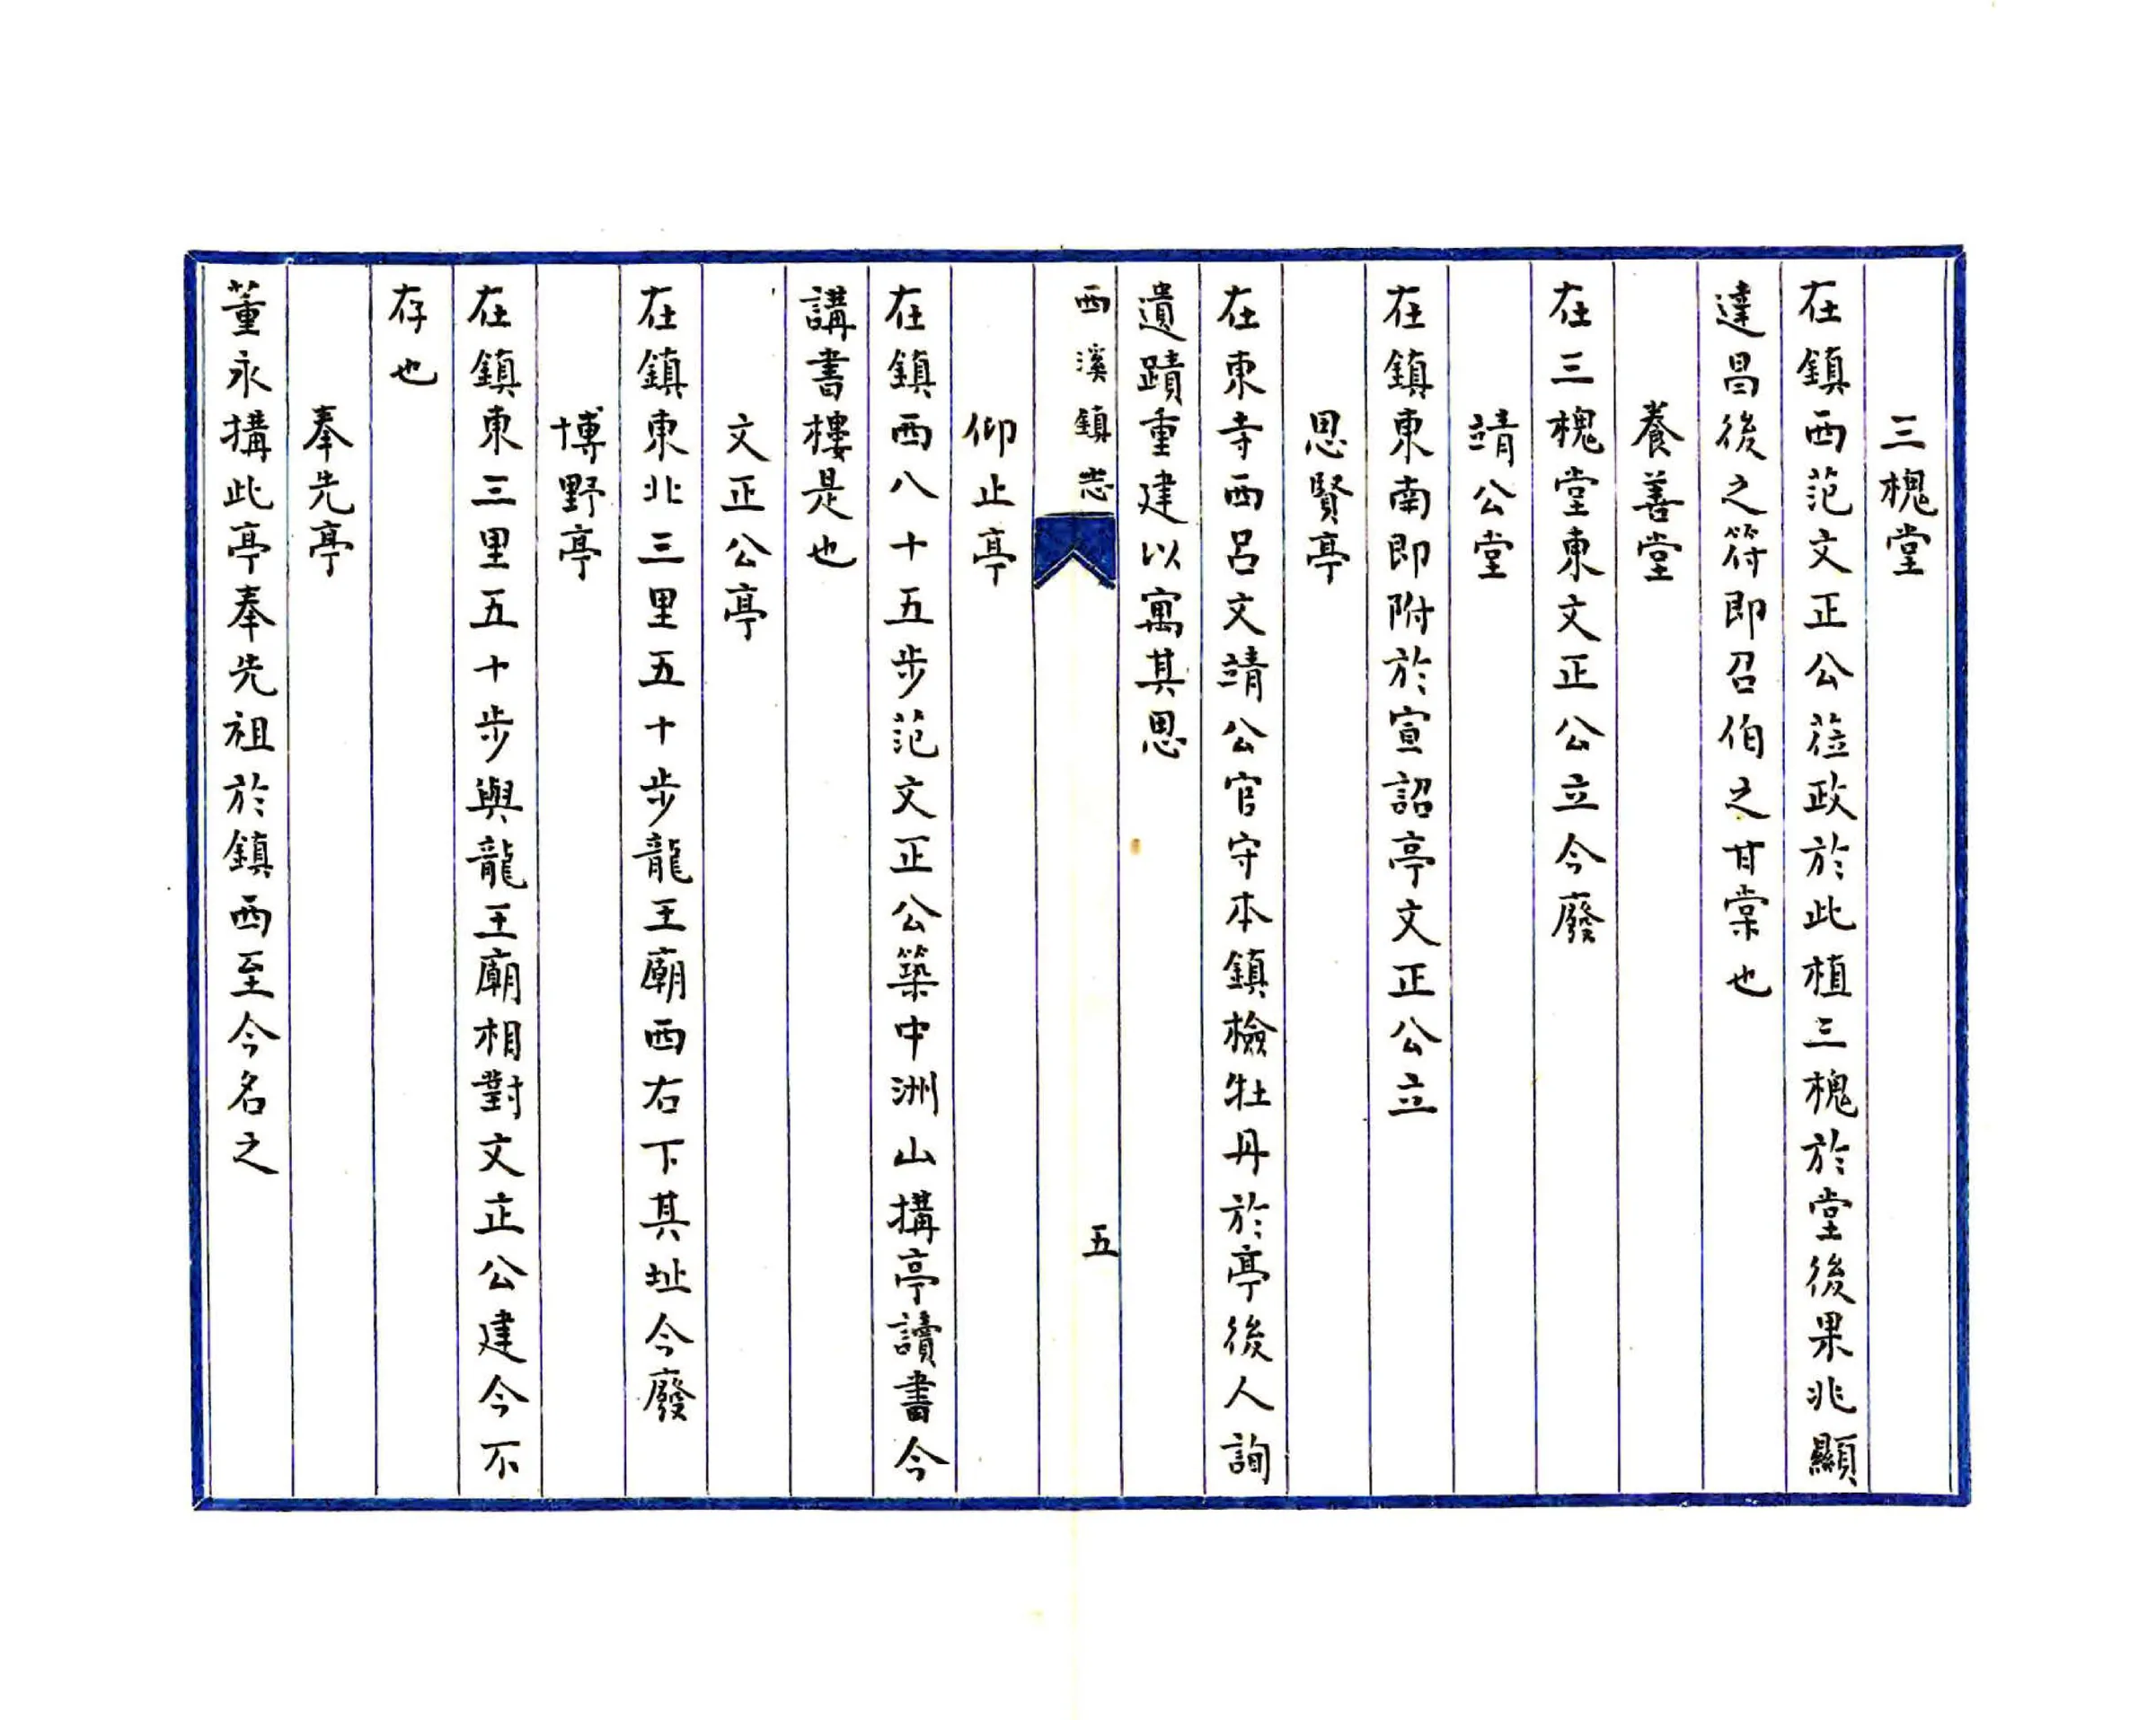 三槐堂
在鎮西范文正公蒞政於此植三槐於堂後果兆顯
達昌後之符即召伯之甘棠也
養善堂
在三槐堂東文正公立今廢
靖公堂
在鎮東南即附於宣詔亭文正公立
思賢亭
在東寺西呂文靖公官守本鎮檢牡丹於亭後人詢
遺蹟重建以寓其思
西溪鎮志
五
仰止亭
在鎮西八十五步范文正公築中洲山搆亭讀書今
講書樓是也
文正公亭
在鎮東北三里五十步龍王廟西右下其址今廢
博野亭
在鎮東三里五十步與龍王廟相對文正公建今不
存也
奉先亭
董永搆此亭奉先祖於鎮西至今名之